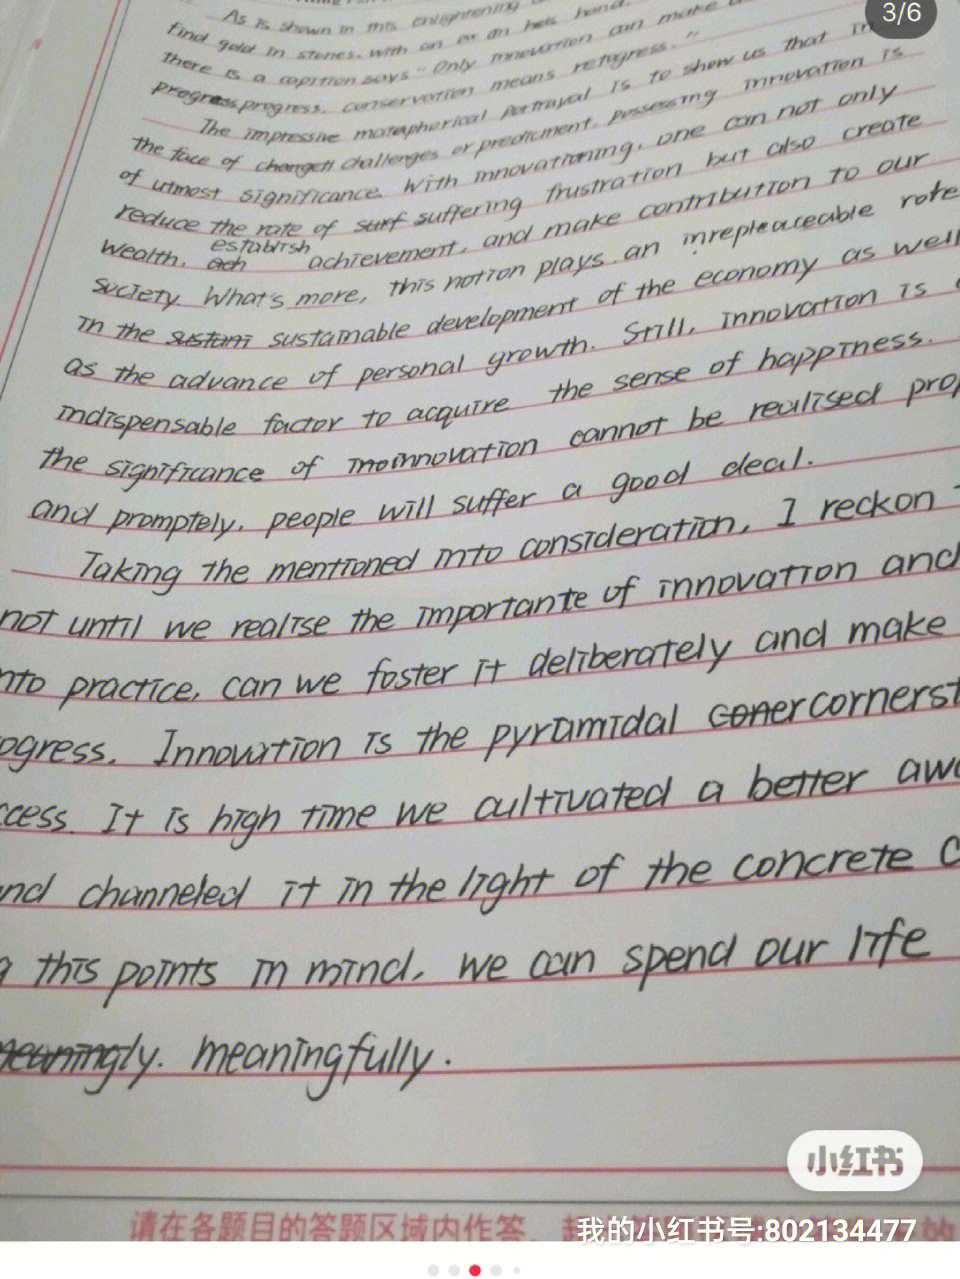 3/6
As is shown in this enlightening
find gold in stones, with an ax in heis hand.
there is a caprtion says "Only innovation can make
progress progress, conservation means retogress."
The impressive mataphorical portrayal is to show us that in
the face of changeti challenges or predicment, possessing innovation is
of utmost significance. With innovationing, one can not only
reduce the rate of surf suffering frustration but also create
wealth, ach establish achievement, and make contribution to our
society. What's more, this notion plays an inrepleaceable rote
in the sustani sustainable development of the economy as well
as the advance of personal growth. Still, innovation is
indispensable factor to acquire the sense of happiness.
the significance of inoinnovation cannot be realised prop
and promptely, people will suffer a good deal.
Taking the mentioned into consideration, I reckon
not until we realise the importante of innovation and
nto practice, can we foster it deliberately and make
ogress. Innovation is the pyramidal coner cornerst
ccess. It is high time we cultivated a better awa
nd channeled it in the light of the concrete c
g this points in mind, we can spend our life
meaningly. meaningfully.
小红书
请在各题目的答题区域内作答
我的小红书号:802134477